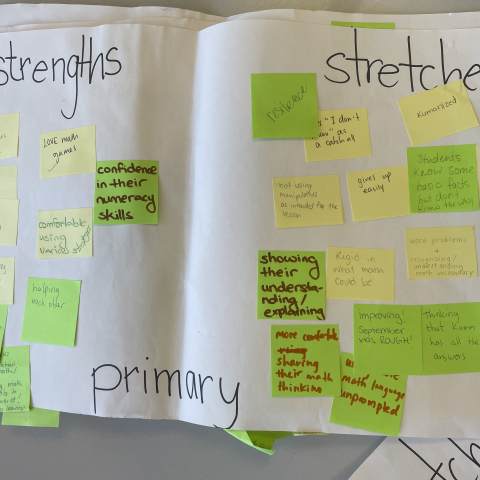 strengths
LOVE math
games
confidence
in their
numeracy
skills
comfortable
using
various
helping
each other
primary
stretche
resilience
"I don't
as
a catch all
Kumarlized
not using
manipulatives
as intended for the
lesson
gives up
easily
Students
know some
basic facts
but don't
know the why
showing
their
understa-
nding/
explaining
Rigid in
what math
could be
word problems
+
recognizing/
understanding
math vocabulary
more comfortable
sharing
their math
thinking
Improving!
September
was ROUGH!
Thinking
that Kumon
has all the
answers
math language
unprompted